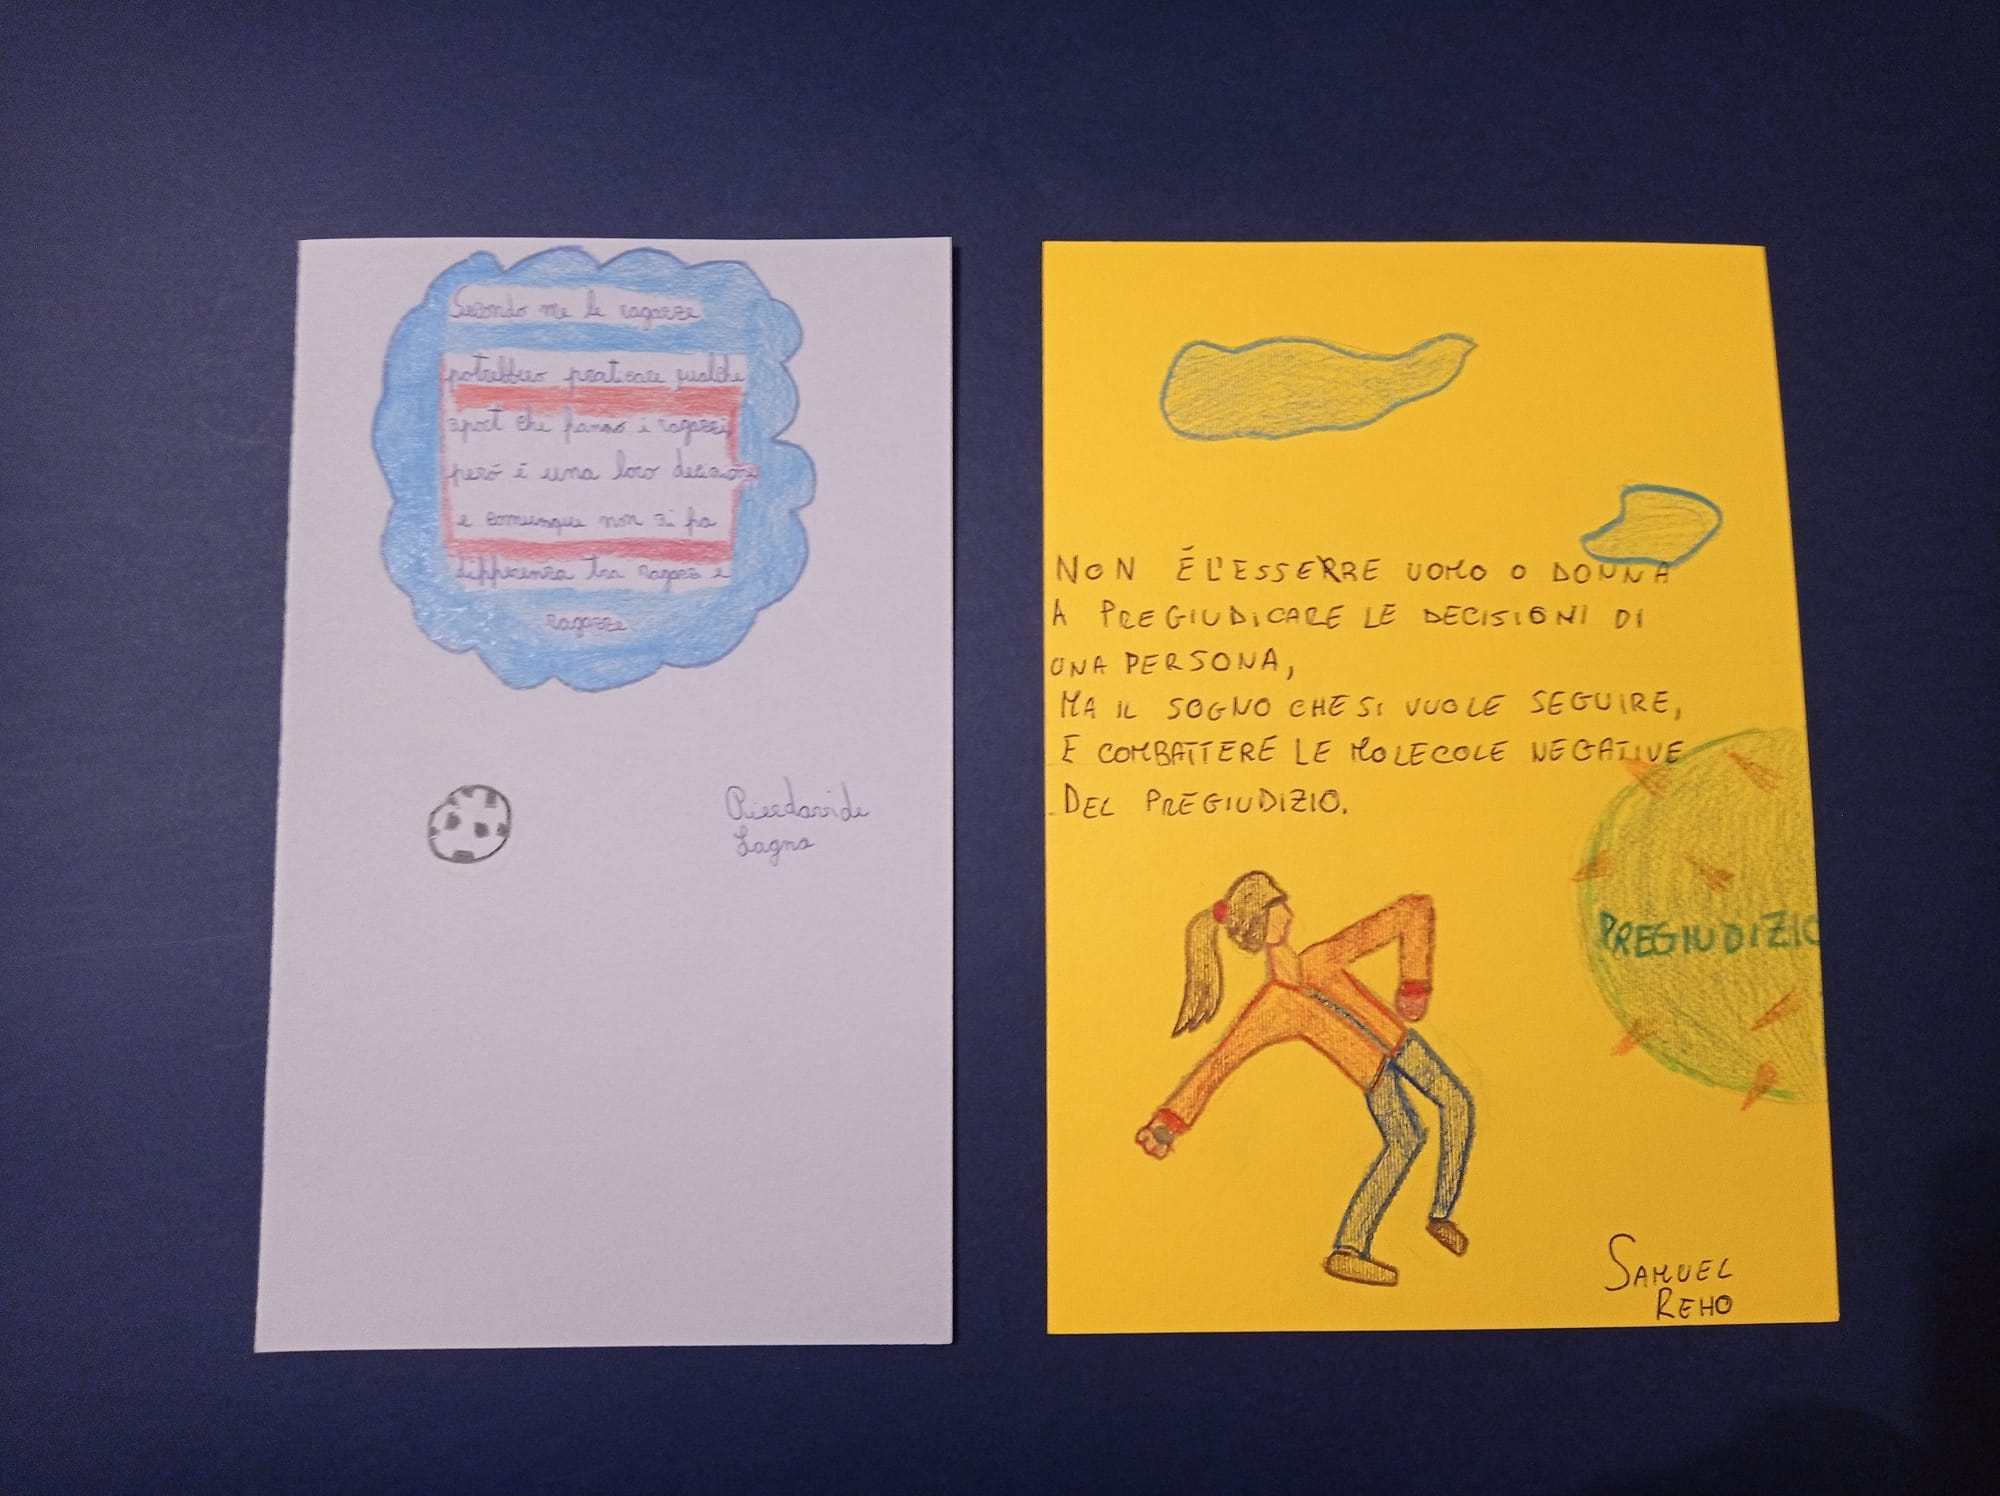 Secondo me le ragazze
potrebbero praticare qualche
sport che fanno i ragazzi
però è una loro decisione
e comunque non si fa
differenza tra ragazzi e
ragazze
Pierdavide
Lagna
NON É L'ESSERRE UOMO O DONNA
A PREGIUDICARE LE DECISIONI DI
UNA PERSONA,
MA IL SOGNO CHE SI VUOLE SEGUIRE,
E COMBATTERE LE MOLECOLE NEGATIVE
DEL PREGIUDIZIO.
PREGIUDIZIO
SAMUEL
REHO